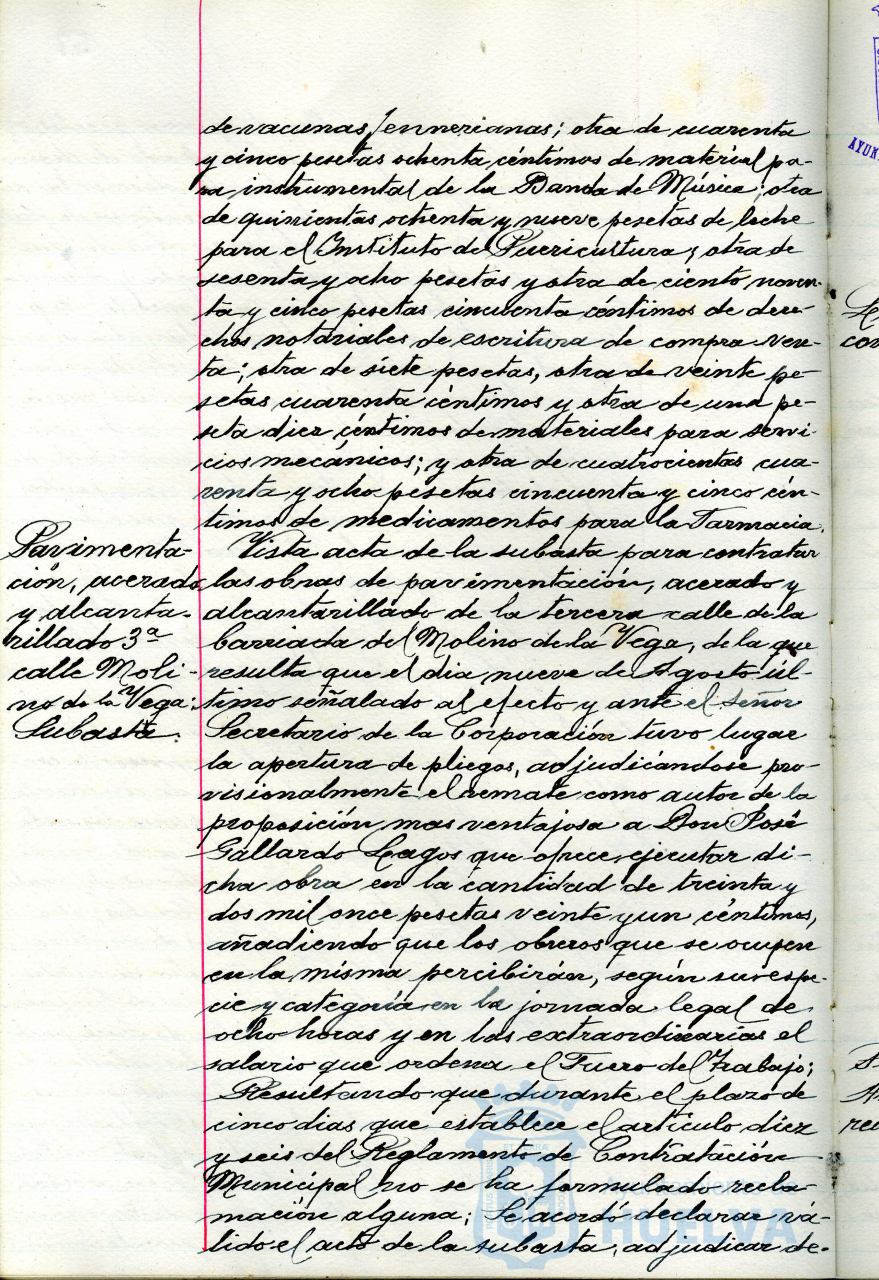 de vacunas Jennerianas; otra de cuarenta
y cinco pesetas ochenta céntimos de material pa-
ra instrumental de la Banda de Música; otra
de quinientas ochenta y nueve pesetas de leche
para el Instituto de Puericultura; otra de
sesenta y ocho pesetas y otra de ciento noven-
ta y cinco pesetas cincuenta céntimos de dere-
chos notariales de escritura de compra-ven-
ta; otra de siete pesetas, otra de veinte pe-
setas cuarenta céntimos y otra de una pe-
seta diez céntimos de materiales para servi-
cios mecánicos; y otra de cuatrocientas cua-
renta y ocho pesetas cincuenta y cinco cén-
timos de medicamentos para la Farmacia.
Pavimenta-
ción, acerado
y alcanta-
rillado 3ª
calle Moli-
no de la Vega:
Subasta.
Vista acta de la subasta para contratar
las obras de pavimentación, acerado y
alcantarillado de la tercera calle de la
barriada del Molino de la Vega, de la que
resulta que el dia nueve de Agosto úl-
timo señalado al efecto y ante el Señor
Secretario de la Corporación tuvo lugar
la apertura de pliegos, adjudicándose pro-
visionalmente el remate como autor de la
proposición mas ventajosa a Don José
Gallardo Lagos que ofrece ejecutar di-
cha obra en la cantidad de treinta y
dos mil once pesetas veinte y un céntimos,
añadiendo que los obreros que se ocupen
en la misma percibirán, según su espe-
cie y categoría en la jornada legal de
ocho horas y en las extraordinarias el
salario que ordena el Fuero del Trabajo;
Resultando que durante el plazo de
cinco dias que establece el artículo diez
y seis del Reglamento de Contratación
Municipal no se ha formulado recla-
mación alguna; Se acordó declarar vá-
lido el acto de la subasta, adjudicar de-
Ayuntamiento de
HUELVA